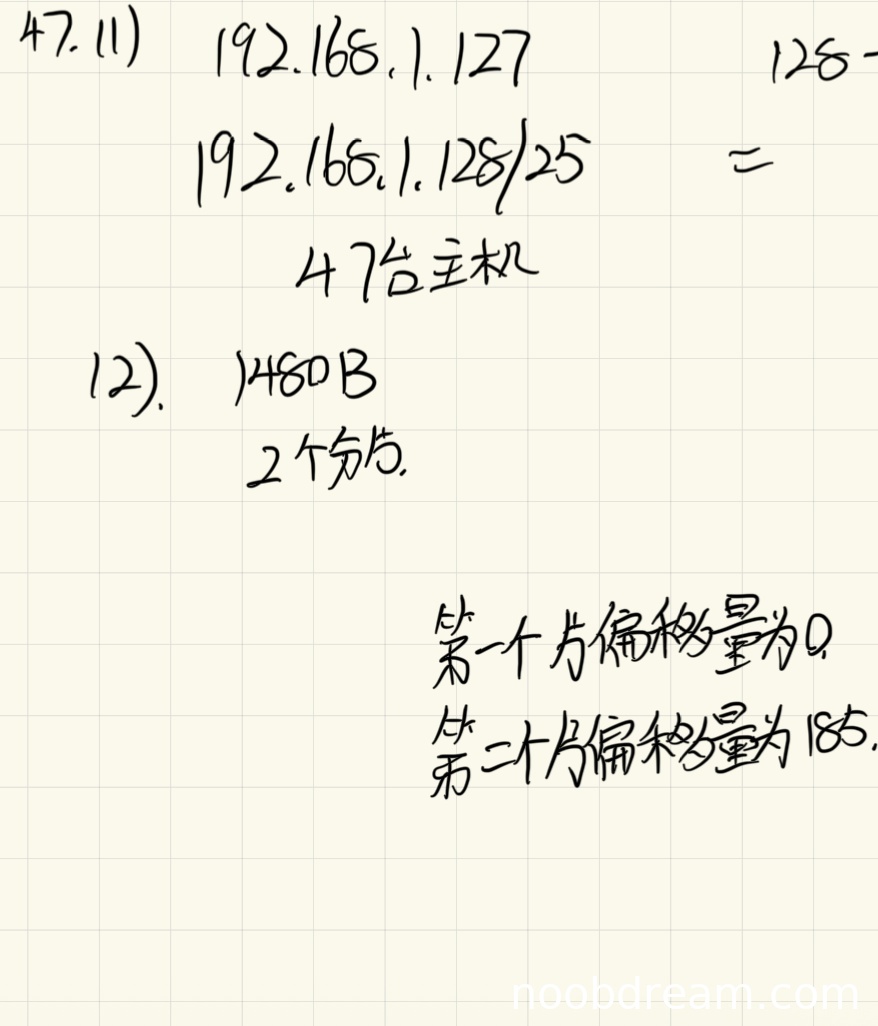 47. (1) 192.168.1.127 128-
192.168.1.128/25 =
47台主机
(2). 1480B
2个分片.
第一个片偏移量为0.
第二个片偏移量为185.
noobdream.com